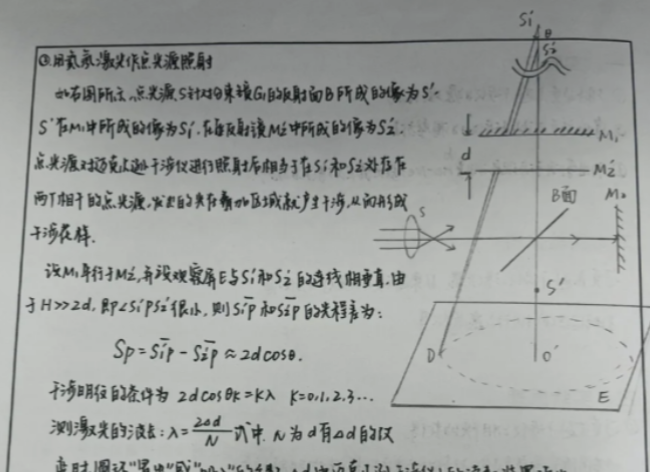 ③用氦氖激光作点光源照射
如右图所示,点光源S针对分束镜G1的反射面B所成的像为S'.
S'在M1中所成的像为Si,在反射镜M2中所成的像为S2.
点光源对迈克尔逊干涉仪进行照射后相当于在Si和S2处存在
两个相干的点光源,发出的光在叠加区域就产生干涉,从而形成
干涉花样.
设M1平行于M2',并设观察屏E与Si和S2的连线相垂直.由
于H>>2d,即∠SiPS2很小,则SiP和S2P的光程差为:
Sp=SiP-S2P≈2dcosθ.
干涉明纹的条件为 2dcosθk=kλ k=0,1,2,3...
测激光的波长:λ=2Δd/N 式中,N为d有Δd的
Si
θ
S2
M1
d
M2'
B面
M2
S
S'
D
O'
E